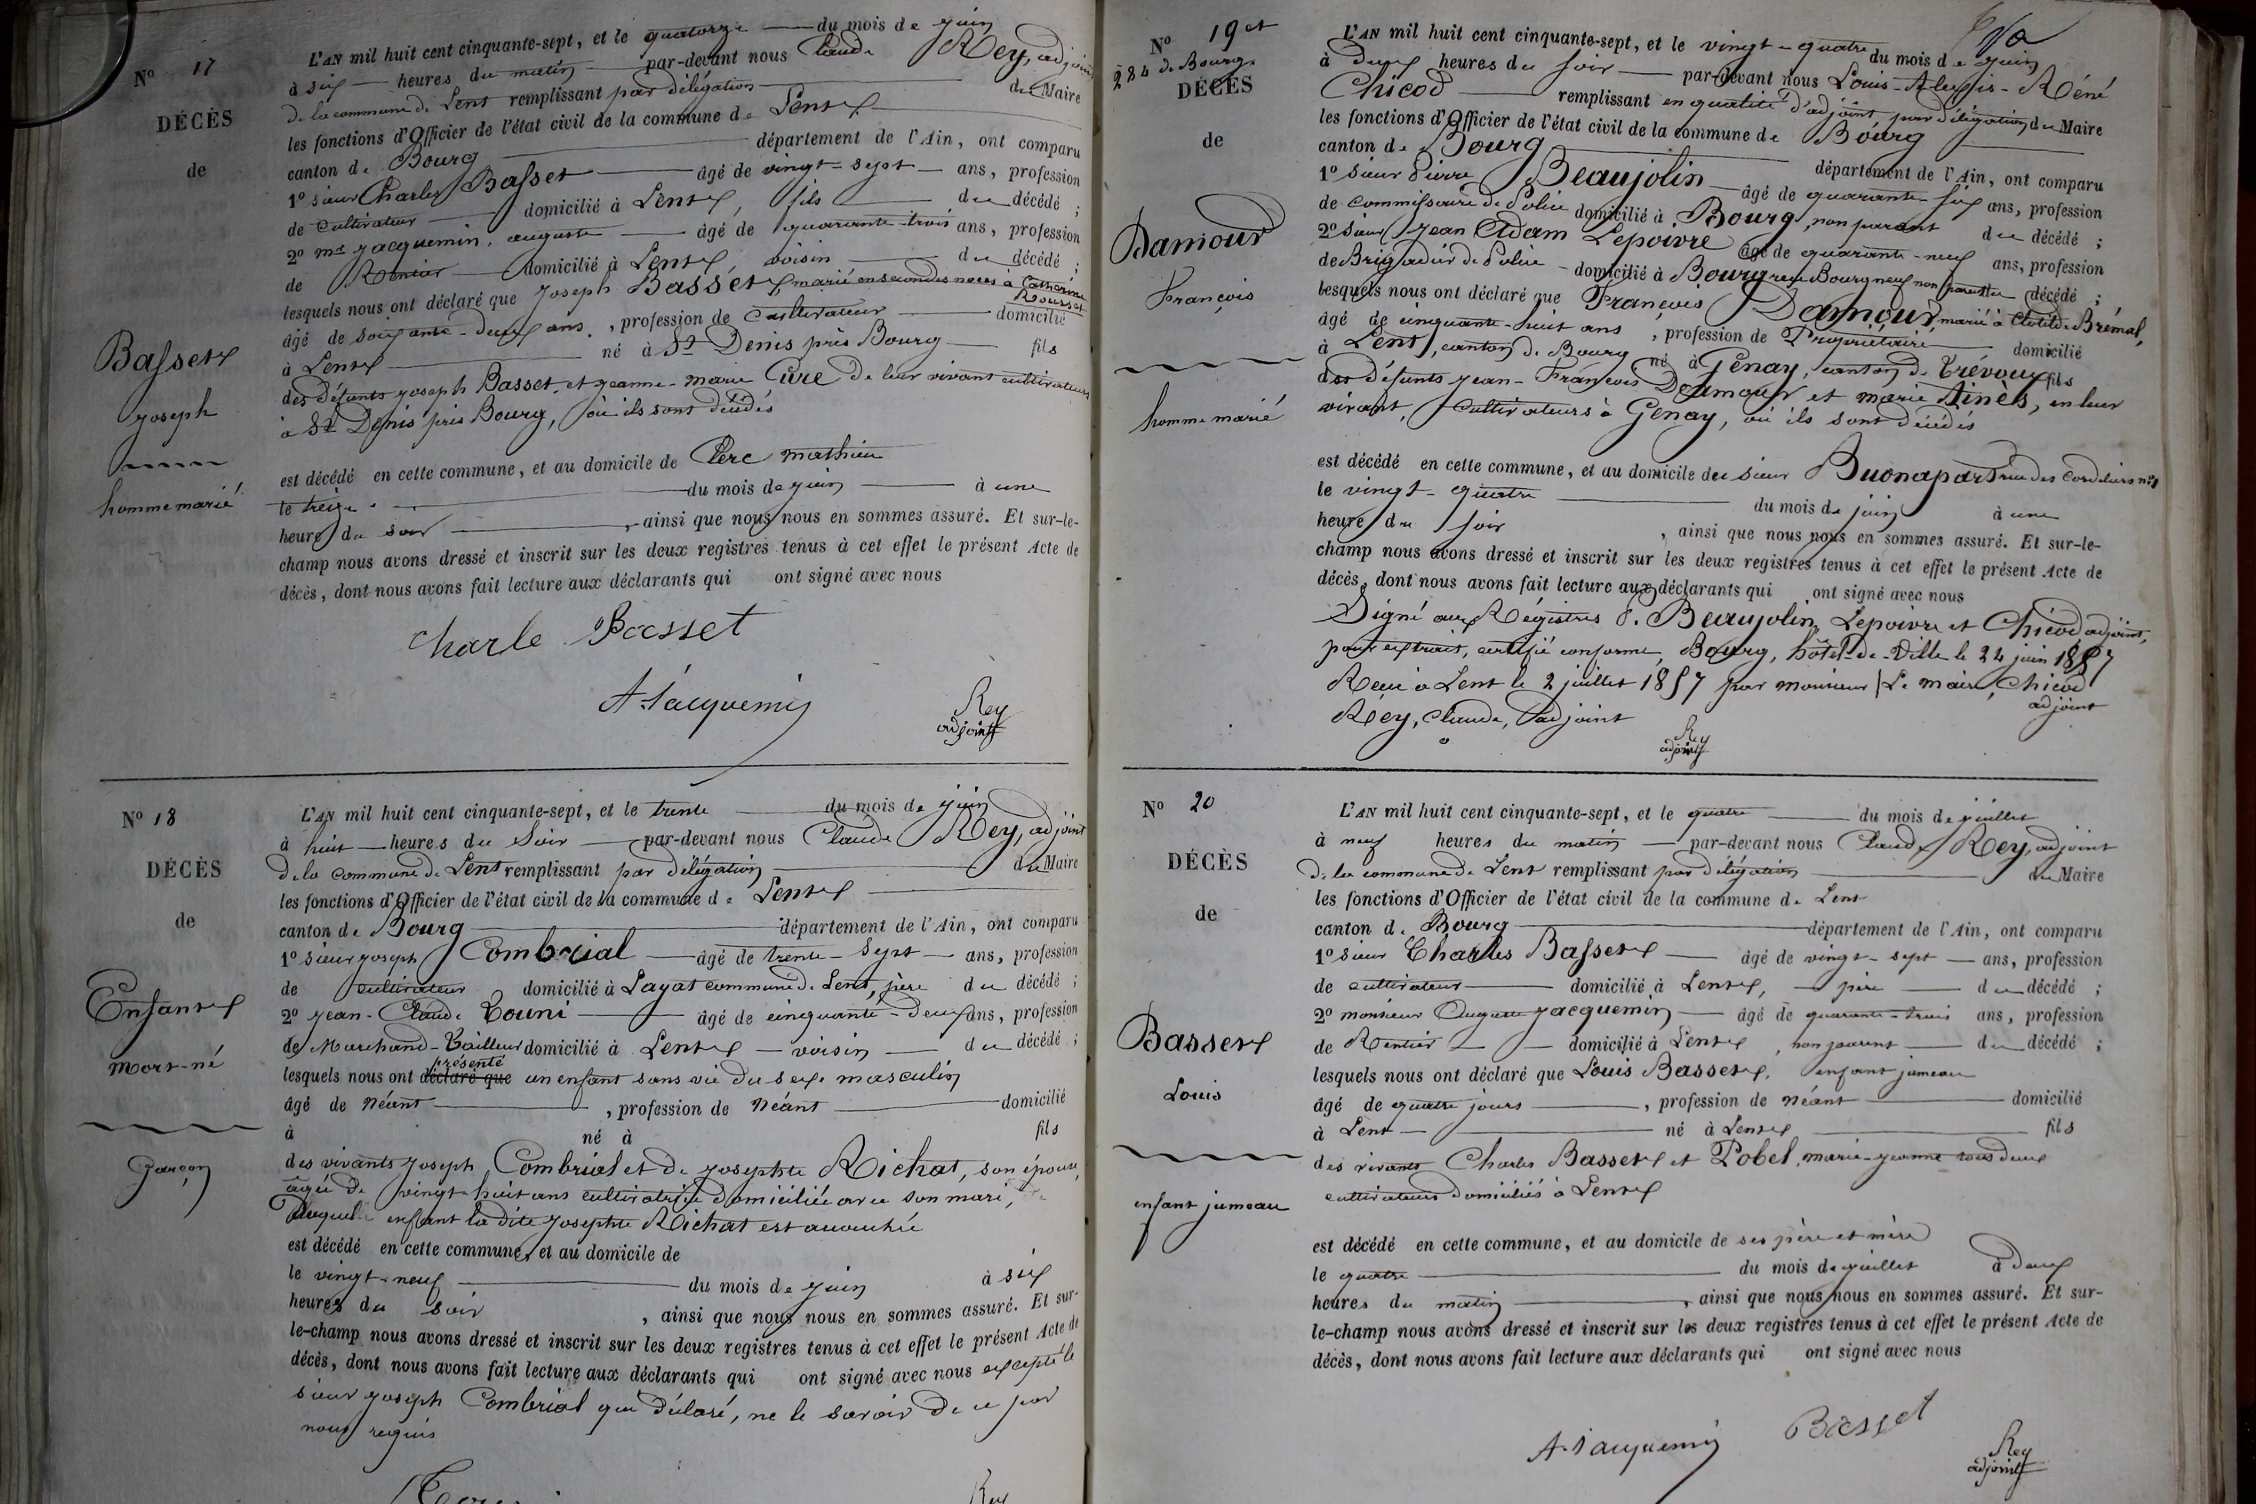 N° 17
DÉCÈS
de
Basset
Joseph
homme marié
L'AN mil huit cent cinquante-sept, et le quatorze du mois de juin
à six heures du matin par-devant nous Claude Rey, adjoint
de la commune de Lent remplissant par délégation du Maire
les fonctions d'Officier de l'état civil de la commune de Lent
canton de Bourg département de l'Ain, ont comparu
1° sieur Charles Basset âgé de vingt-sept ans, profession
de cultivateur domicilié à Lent, fils du décédé ;
2° mr jacquemin, auguste âgé de quarante-trois ans, profession
de Rentier domicilié à Lent, voisin du décédé ;
lesquels nous ont déclaré que Joseph Basset, marié en secondes noces à Catherine
âgé de soixante-deux ans, profession de cultivateur domicilié
à Lent né à St Denis près Bourg fils
des défunts joseph Basset et jeanne-marie Cure de leur vivant cultivateurs
à St Denis près Bourg, où ils sont décédés
est décédé en cette commune, et au domicile de Clerc mathieu
le treize du mois de juin à une
heure du soir, ainsi que nous nous en sommes assuré. Et sur-le-
champ nous avons dressé et inscrit sur les deux registres tenus à cet effet le présent Acte de
décès, dont nous avons fait lecture aux déclarants qui ont signé avec nous
Charle Basset
A. Jacquemin
Rey
adjoint
N° 18
DÉCÈS
de
Enfant
mort-né
Garçon
L'AN mil huit cent cinquante-sept, et le trente du mois de juin
à huit heures du Soir par-devant nous Claude Rey, adjoint
de la commune de Lent remplissant par délégation du Maire
les fonctions d'Officier de l'état civil de la commune de Lent
canton de Bourg département de l'Ain, ont comparu
1° sieur joseph Combrial âgé de trente-sept ans, profession
de cultivateur domicilié à Layat commune de Lent, père du décédé ;
2° jean-Claude Touni âgé de cinquante-deux ans, profession
de Marchand-Tailleur domicilié à Lent voisin du décédé ;
lesquels nous ont déclaré que présenté un enfant sans vie du sexe masculin
âgé de Néant, profession de Néant domicilié
à né à fils
des vivants joseph Combrial et de josephte Richat, son épouse,
âgée de vingt-huit ans cultivatrice domiciliée avec son mari,
duquel enfant la dite josephte Richat est accouchée
est décédé en cette commune, et au domicile de
le vingt-neuf du mois de juin à six
heures du soir, ainsi que nous nous en sommes assuré. Et sur-
le-champ nous avons dressé et inscrit sur les deux registres tenus à cet effet le présent Acte de
décès, dont nous avons fait lecture aux déclarants qui ont signé avec nous excepté le
sieur joseph Combrial qui a déclaré, ne le savoir de ce par
nous requis
Rey
N° 19
284 de Bourg
DÉCÈS
de
Damour
François
homme marié
L'AN mil huit cent cinquante-sept, et le vingt-quatre du mois de juin
à deux heures du soir par-devant nous Louis-Alexis-Réné
Chicod remplissant en qualité d'adjoint, par délégation du Maire
les fonctions d'Officier de l'état civil de la commune de Bourg
canton de Bourg département de l'Ain, ont comparu
1° sieur Pierre Beaujolin âgé de quarante-six ans, profession
de commissaire de Police domicilié à Bourg, non parent du décédé ;
2° sieur jean Adam Lepoivre âgé de quarante-neuf ans, profession
de Brigadier de Police domicilié à Bourg rue Bourgneuf non parent du décédé ;
lesquels nous ont déclaré que François Damour, marié à Clotilde Brémal,
âgé de cinquante-huit ans, profession de Propriétaire domicilié
à Lent, canton de Bourg né à Genay, canton de Trévoux fils
des défunts jean-François Damour et marie Ainès, en leur
vivant, cultivateurs à Genay, où ils sont décédés
est décédé en cette commune, et au domicile du sieur Buonapart rue des Cordeliers n°
le vingt-quatre du mois de juin à une
heure du soir, ainsi que nous nous en sommes assuré. Et sur-le-
champ nous avons dressé et inscrit sur les deux registres tenus à cet effet le présent Acte de
décès, dont nous avons fait lecture aux déclarants qui ont signé avec nous
Signé aux Régistres P. Beaujolin, Lepoivre et Chicod adjoint,
pour extrait, certifié conforme, Bourg, hôtel-de-Ville le 24 juin 1857
Reçu à Lent le 2 juillet 1857 par monsieur Le maire, Chicod
adjoint
Rey, Claude, adjoint
Rey
adjoint
N° 20
DÉCÈS
de
Basset
Louis
enfant jumeau
L'AN mil huit cent cinquante-sept, et le quatre du mois de juillet
à neuf heures du matin par-devant nous Claude Rey, adjoint
de la commune de Lent remplissant par délégation du Maire
les fonctions d'Officier de l'état civil de la commune de Lent
canton de Bourg département de l'Ain, ont comparu
1° sieur Charles Basset âgé de vingt-sept ans, profession
de cultivateur domicilié à Lent, père du décédé ;
2° monsieur Auguste jacquemin âgé de quarante-trois ans, profession
de Rentier domicilié à Lent, non parent du décédé ;
lesquels nous ont déclaré que Louis Basset, enfant jumeau
âgé de quatre jours, profession de Néant domicilié
à Lent né à Lent fils
des vivants Charles Basset et Pobel, marie-jeanne tous deux
cultivateurs domiciliés à Lent
est décédé en cette commune, et au domicile de ses père et mère
le quatre du mois de juillet à deux
heures du matin, ainsi que nous nous en sommes assuré. Et sur-
le-champ nous avons dressé et inscrit sur les deux registres tenus à cet effet le présent Acte de
décès, dont nous avons fait lecture aux déclarants qui ont signé avec nous
A. Jacquemin
Basset
Rey
adjoint